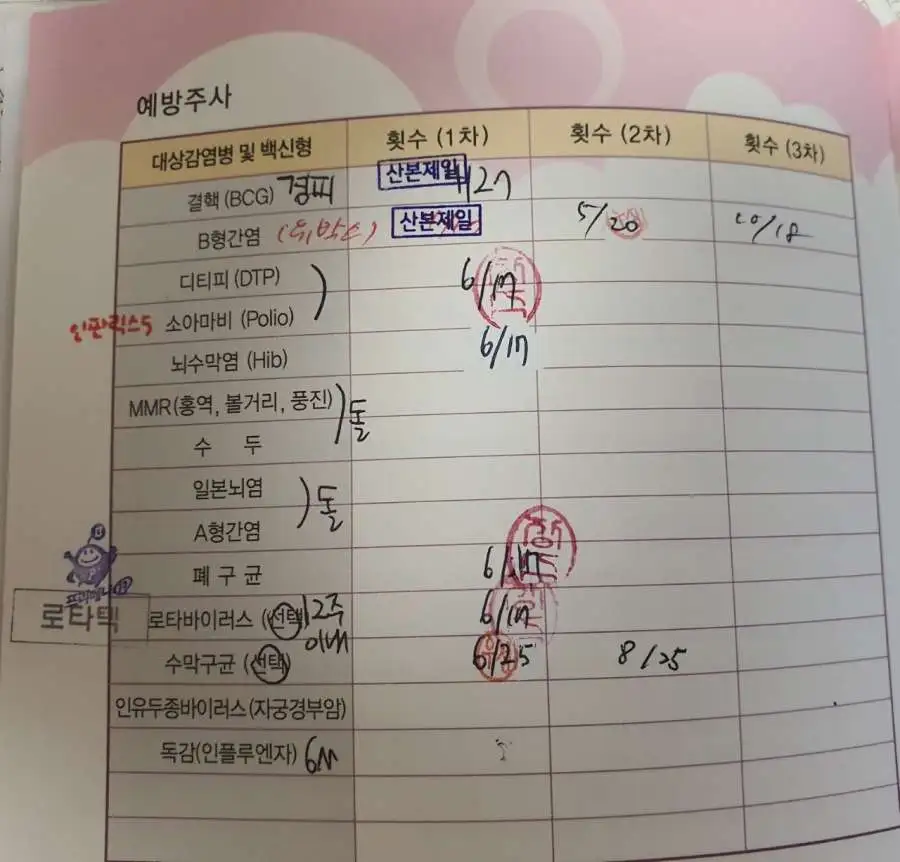 예방주사
대상감염병 및 백신형 횟수 (1차) 횟수 (2차) 횟수 (3차)
결핵 (BCG) 경피 산본제일 4/27
B형간염 (유박스) 산본제일 5/20 10/18
디티피 (DTP) ) 6/17
인판릭스5 소아마비 (Polio)
뇌수막염 (Hib) 6/17
MMR (홍역, 볼거리, 풍진) ) 돌
수 두
일본뇌염 ) 돌
A형간염
폐 구 균 6/17
프리베나 13
로타텍 로타바이러스 (선택) 12주 이내 6/17
수막구균 (선택) 6/25 8/25
인유두종바이러스 (자궁경부암)
독감(인플루엔자) 6M